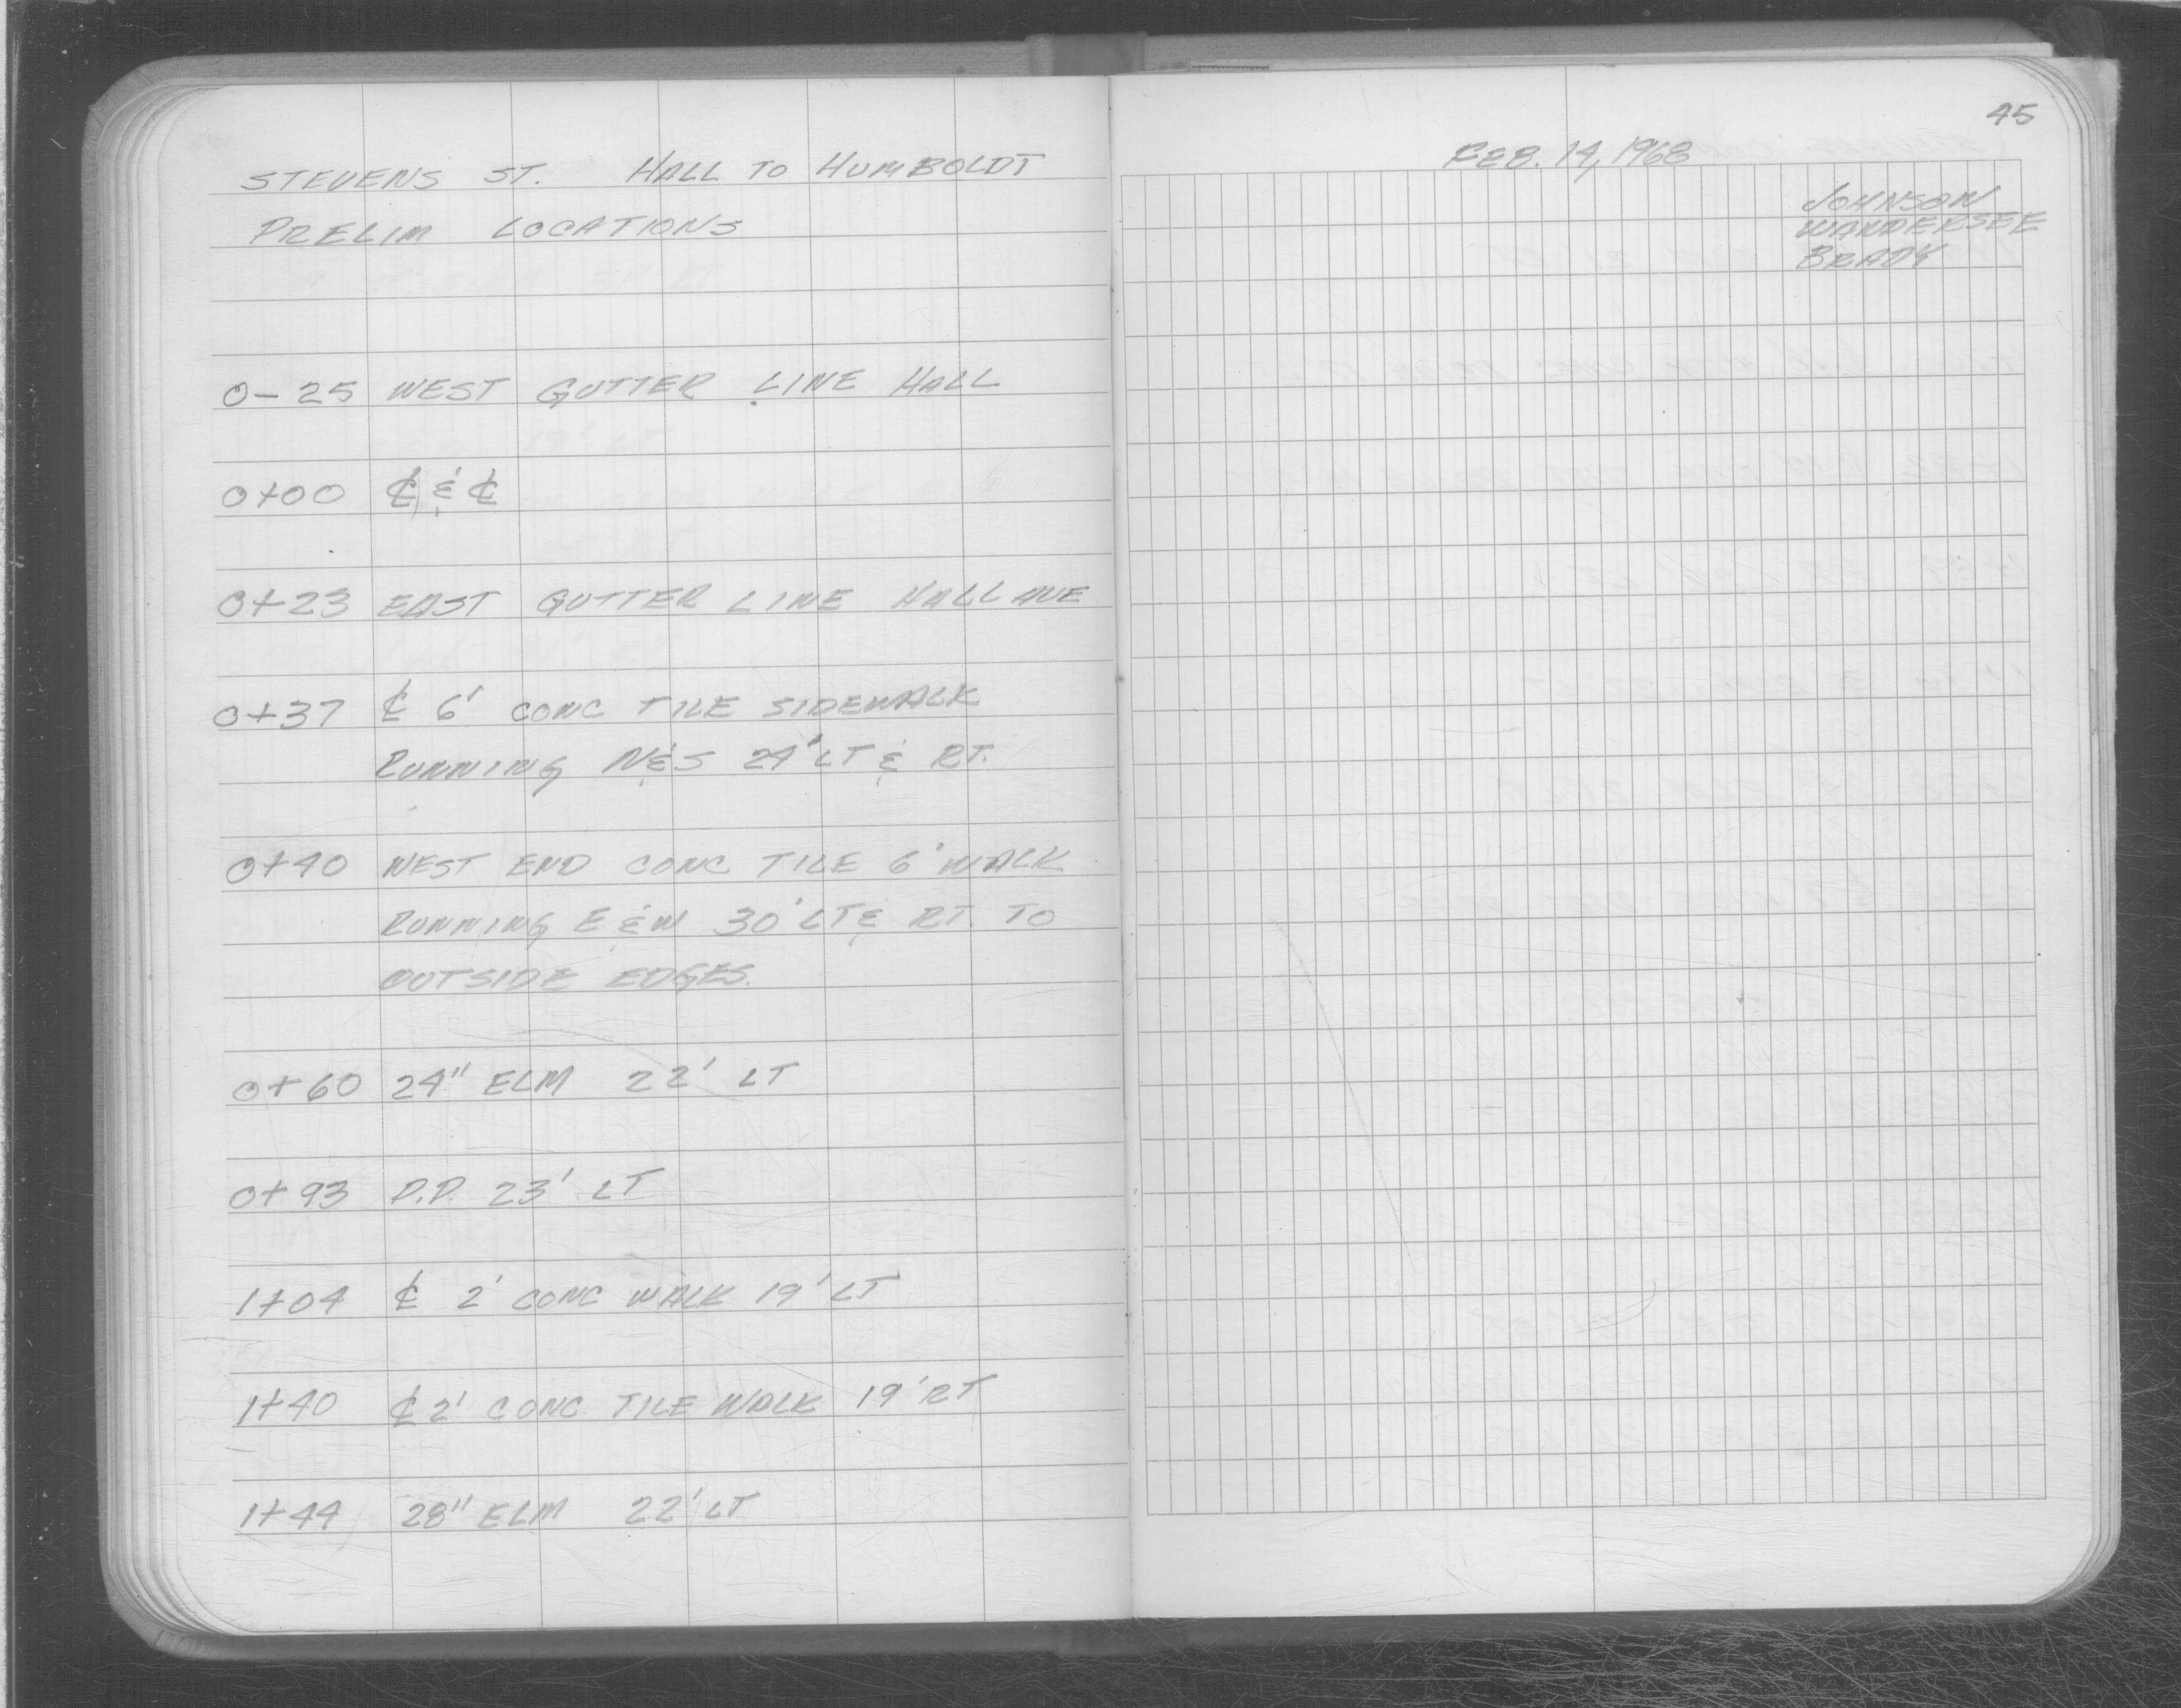 STEVENS ST. HALL TO HUMBOLDT
PRELIM LOCATIONS
0-25 WEST GUTTER LINE HALL
0+00 ℄ & ℄
0+23 EAST GUTTER LINE HALL AVE
0+37 ℄ 6' CONC TILE SIDEWALK
RUNNING N&S 24' LT & RT.
0+40 WEST END CONC TILE 6' WALK
RUNNING E & W 30' LT & RT. TO
OUTSIDE EDGES.
0+60 24" ELM 22' LT
0+93 P.P. 23' LT
1+04 ℄ 2' CONC WALK 19' LT
1+40 ℄ 2' CONC TILE WALK 19' RT
1+44 28" ELM 22' LT
45
FEB. 14, 1968
JOHNSON
WANDERSEE
BRADY